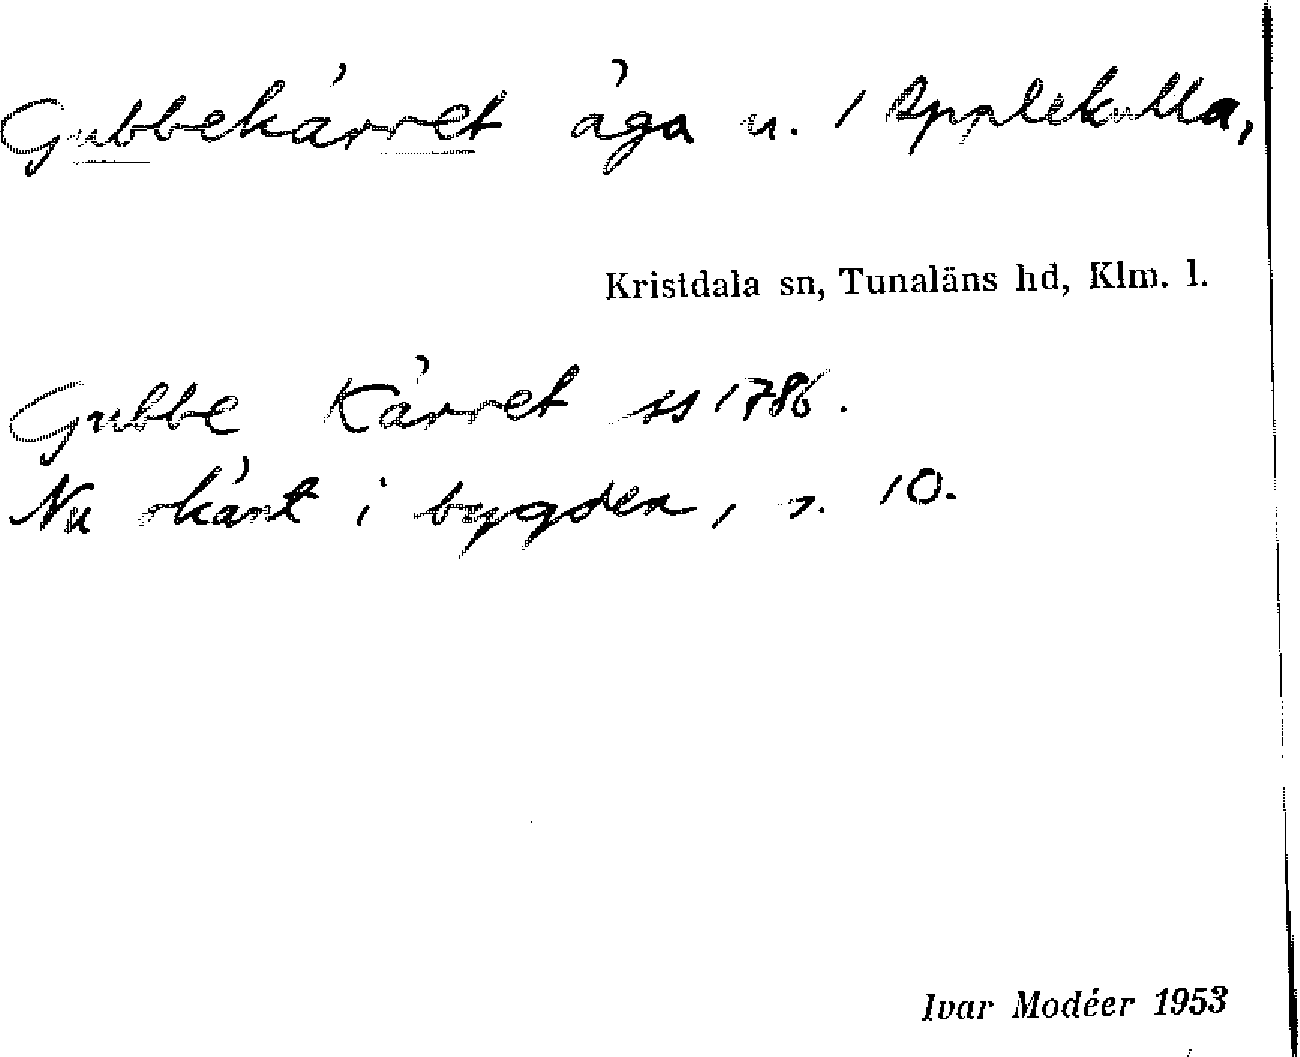 Gubbekärret äga u. 1 Applekulla,
Kristdala sn, Tunaläns hd, Klm. l.
Gubbe Kärret ss 1786.
Nu okänt i bygden, s. 10.
Ivar Modéer 1953